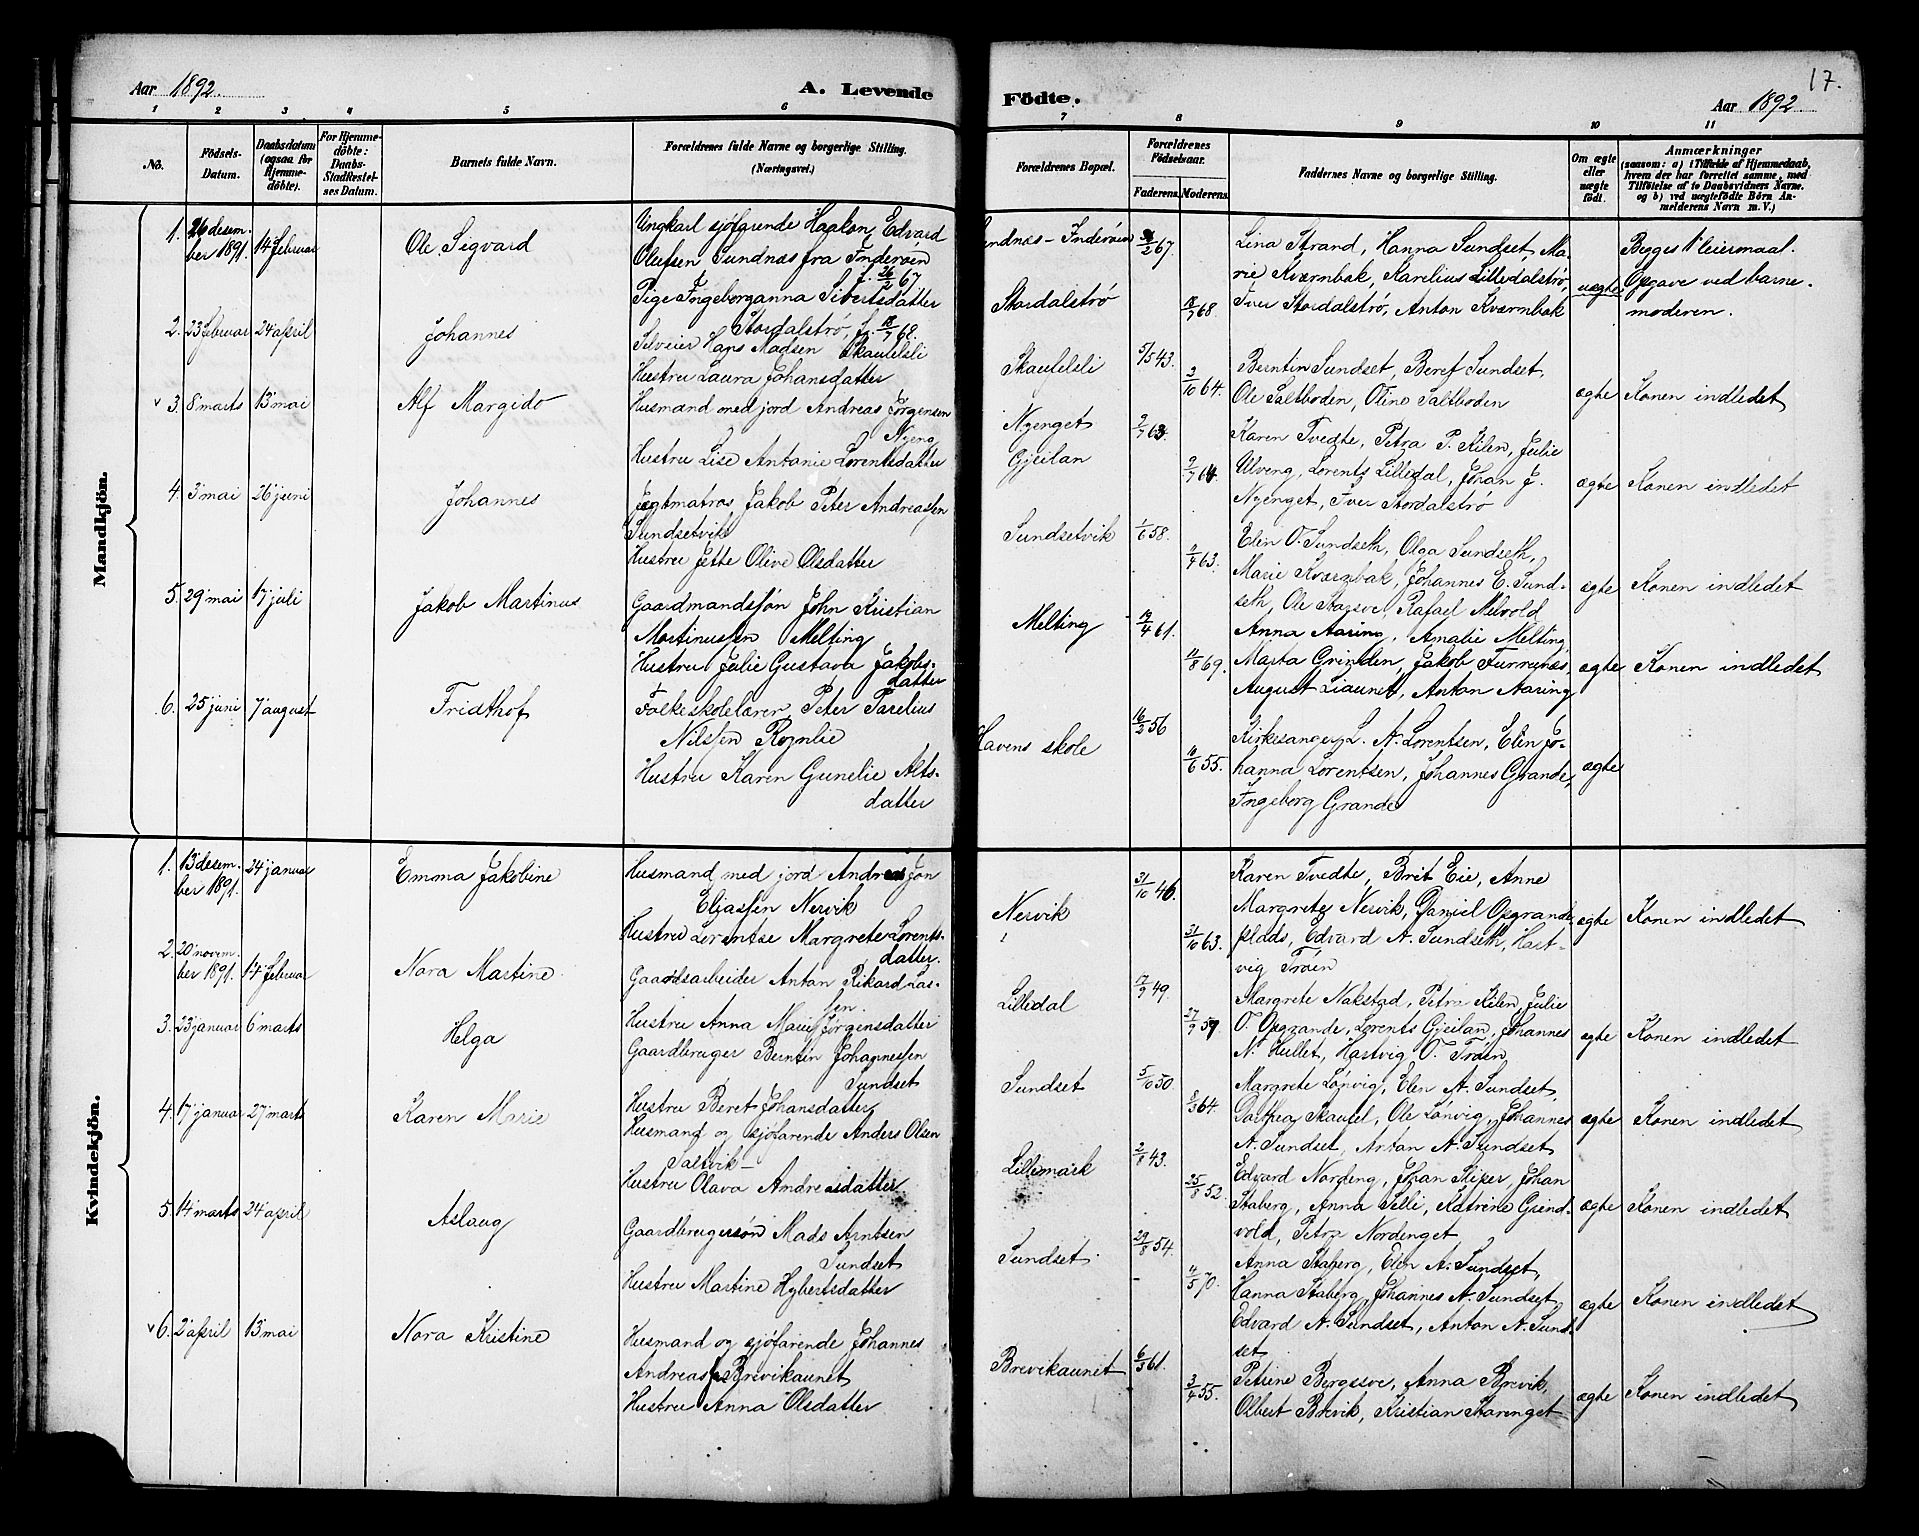 Aar 1892.
A. Levende
1 2 3 4 5 6
No.
Födsels-
Datum.
Daabsdatum
(ogsaa for
Hjemme-
döbte).
For Hjemme-
döbte:
Daabs-
Stadfæstel-
ses Datum.
Barnets fulde Navn.
Forældrenes fulde Navne og borgerlige Stilling.
(Næringsvei.)
Mandkjön.
1. 26 desem-
ber 1891. 14 februar
Ole Sigvard
Ungkarl sjöfarende Haakon Edvard
Olufsen Sundnæs fra Inderöen
f. 26/2 67
Pige Ingeborganna Sivertsdatter
Stordalströ, f. 18/7 68.
2. 23 februar 24 april
Johannes
Selveier Hans Madsen Skaufelsli
Hustru Laura Johansdatter
v 3. 8 marts 13 mai
Alf Margido
Husmand med jord Andreas Jörgensen
Nyeng
Hustru Lise Antonie Lorentsdatter
4. 3 mai 26 juni
Johannes
Jægtmatros Jakob Peter Andreassen
Sundsetvik
Hustru Jette Olive Olsdatter
5. 29 mai 17 juli
Jakob Martinus
Gaardmandssön John Kristian
Martinussen Melting
Hustru Julie Gustava Jakobs-
datter
6. 25 juni 7 august
Fridthof
Folkeskolelærer Peter Parelius
Nilssen Rognlie
Hustru Karen Gunelie Alts-
datter
Kvindekjön.
1. 13 desem-
ber 1891. 24 januar
Emma Jakobine
Husmand med jord Andreas Jon
Eliassen Nervik
Hustru Lorentse Margrete Lorents-
datter.
2. 20 novem-
ber 1891. 14 februar
Nora Martine
Gaardsarbeider Anton Rikard Las-
sen.
Hustru Anna Marie Jörgensdatter
3. 23 januar 6 marts
Helga
Gaardbruger Berntin Johannessen
Sundset
Hustru Beret Johansdatter
4. 17 januar 27 marts
Karen Marie
Husmand og sjöfarende Anders Olsen
Saltvik
Hustru Olava Andreasdatter
5. 14 marts 24 april
Aslaug
Gaardbrugersön Mads Arntsen
Sundset
Hustru Martine Hybertsdatter
v 6. 2 april 13 mai
Nora Kristine
Husmand og sjöfarende Johannes
Andreassen Brevikaunet
Hustru Anna Olsdatter
Födte.
17.
Aar 1892
7 8 9 10 11
Forældrenes Bopæl.
Forældrenes
Födselsaar.
Faderens. Moderens.
Faddernes Navne og borgerlige Stilling.
Om ægte
eller
uægte
födt.
Anmærkninger
(saasom: a) i Tilfælde af Hjemmedaab,
hvem der har forrettet samme, med
Tilföielse af to Daabsvidners Navne.
og b) ved uægtefödte Börn An-
melderens Navn m. V.)
Sundnæs - Inderöen
Stordalströ
/2 67.
18/7 68.
Lina Strand, Hanna Sundset, Ma-
rie Kværnbak, Karelius Lilledalströ,
Iver Stordalströ, Anton Kværnbak
uægte
Begges 1ste leiermaal.
Opgave ved barne-
moderen.
Skaufelsli
5/5 43.
3/10 64.
Berntin Sundset, Beret Sundset,
Ole Saltboden, Oline Saltboden
ægte
Konen indledet
Nyenget
Gjeilan
9/7 63.
9/7 64.
Karen Tvedte, Petra P. Kilen, Julie
Ulveng, Lorents Lilledal, Johan J.
Nyenget, Iver Stordalströ
ægte
Konen indledet
Sundsetvik
1/6 58.
4/4 63.
Elen O. Sundseth, Olga Sundseth,
Marie Kværnbak, Johannes E. Sund-
seth, Ole Stagsve, Rafael Melvold
ægte
Konen indledet
Melting
19/4 61.
11/8 69.
Anna Aaring, Amalie Melting
Marta Grinden, Jakob Furrunæs,
August Liaunet, Anton Aaring
ægte
Konen indledet
Havens skole
16/2 56
11/6 55.
Kirkesanger L. A. Lorentsen, Elen Jo-
hanna Lorentsen, Johannes Grande,
Ingeborg Grande
ægte
Nervik
31/10 46.
31/10 63.
Karen Tvedte, Brit Eie, Anne
Margrete Nervik, Daniel Opgrande-
plads, Edvard A. Sundseth, Hart-
vig Tröen
ægte
Konen indledet
Lilledal
17/9 49.
27/9 59.
Margrete Nakstad, Petra Kilen, Julie
O. Opgrande, Lorents Gjeilan, Johannes
N. Hullet, Hartvig O. Tröen
ægte
Konen indledet
Sundset
5/10 50.
8/3 64.
Margrete Lönvig, Elen A. Sundset,
Dorthea Skaufel, Ole Lönvig, Johannes
A. Sundset, Anton A. Sundset
ægte
Konen indledet
Lillemark
2/8 43.
25/8 52.
Edvard Nordeng, Johan Sliper, Johan
Staberg, Anna Selli, Katrine Grind-
vold, Petra Nordenget
ægte
Konen indledet
Sundset
29/8 54.
4/5 70.
Anna Staberg, Elen A. Sundset,
Hanna Staberg, Johannes A. Sundset
Edvard A. Sundset, Anton A. Sund-
set
ægte
Konen indledet
Brevikaunet
6/3 61.
3/4 55.
Petrine Bergssve, Anna Brevik,
Olbert Brevik, Kristian Starenget
ægte
Konen indledet